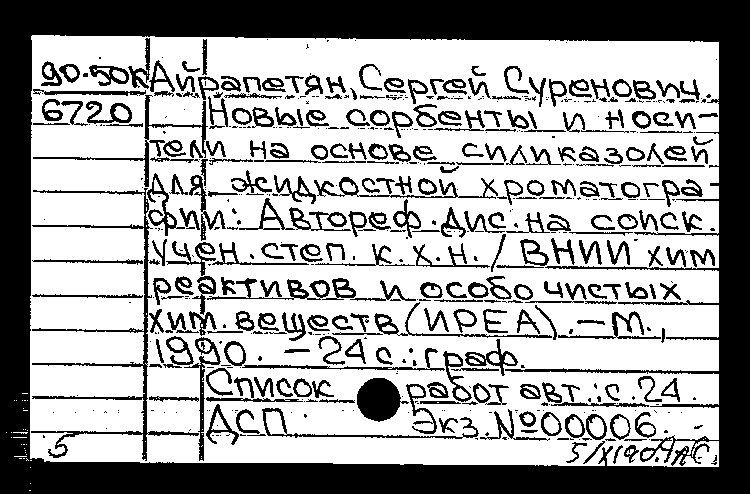 90-50К Айрапетян, Сергей Суренович.
6720 Новые сорбенты и носи-
тели на основе силиказолей
для жидкостной хроматогра-
фии: Автореф. дис. на соиск.
учен. степ. к. х. н. / ВНИИ хим
реактивов и особо чистых
хим. веществ (ИРЕА). - М.,
1990. - 24 с.: граф.
Список работ авт.: с. 24.
ДСП Экз. №00006.
5